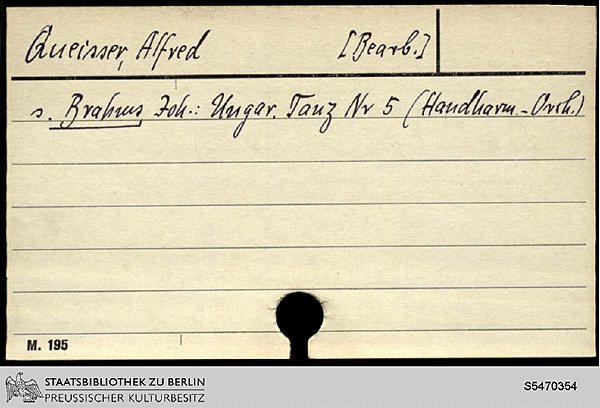 Queisser, Alfred [Bearb.]
s. Brahms, Joh.: Ungar. Tanz Nr 5 (Handharm.-Orch.)
M. 195
STAATSBIBLIOTHEK ZU BERLIN
PREUSSISCHER KULTURBESITZ
S5470354